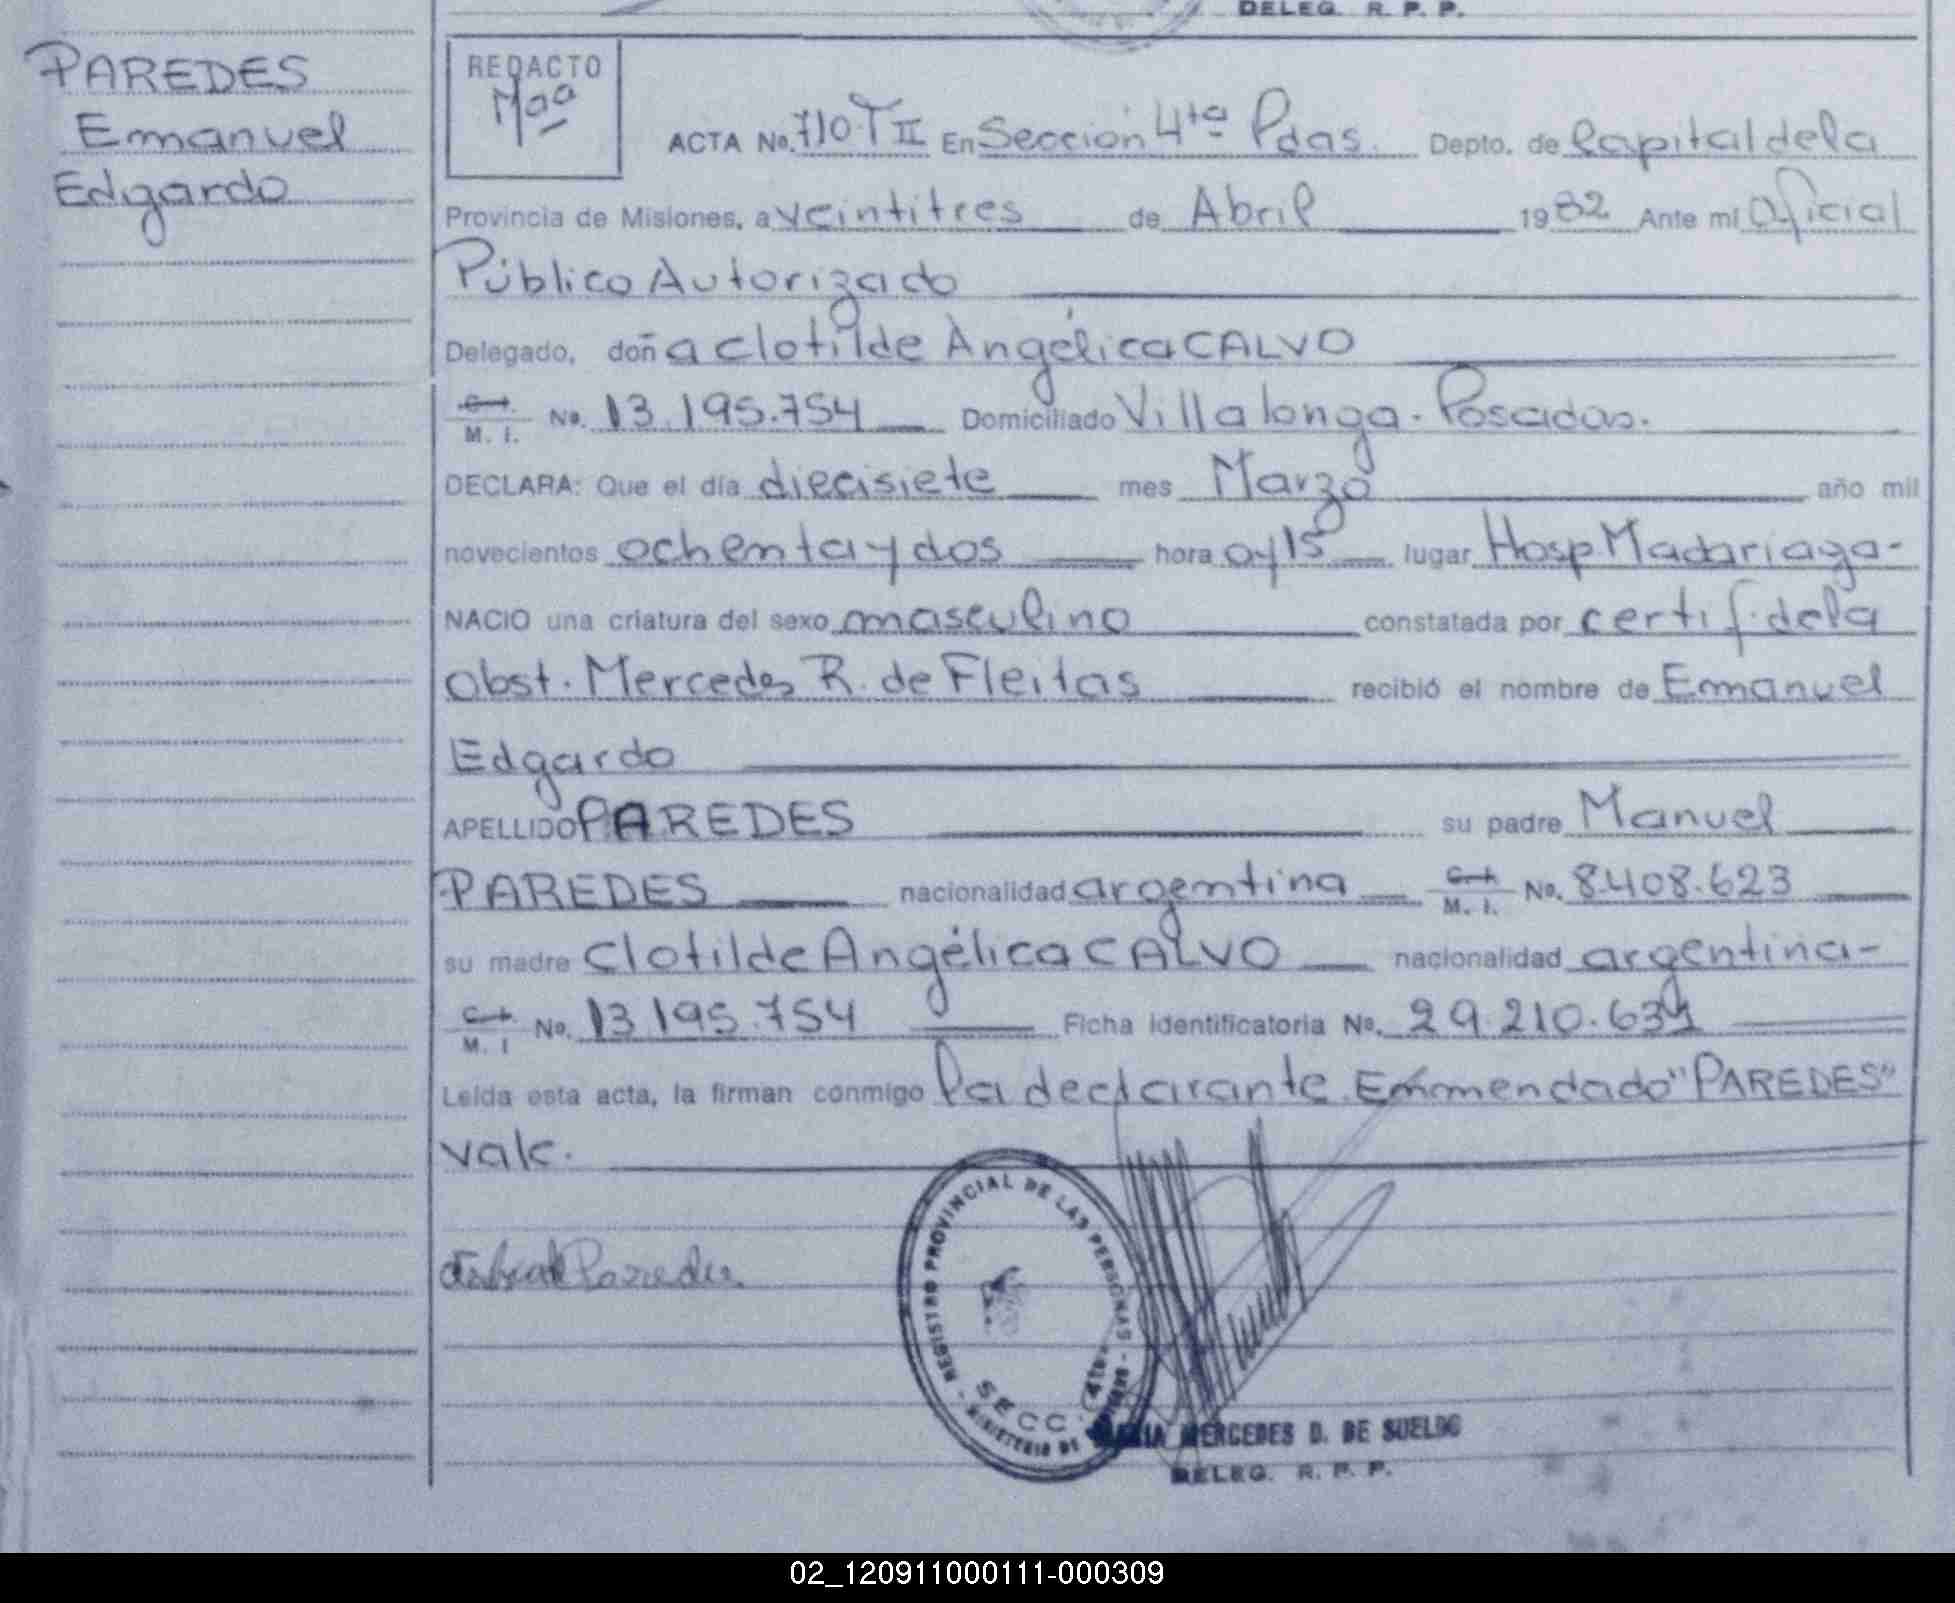 DELEG. R. P. P.
PAREDES
Emanuel
Edgardo
REDACTO
ACTA No. 710 T II En Sección 4ta Pdas. Depto. de Capital de la
Provincia de Misiones, a veintitres de Abril 1982 Ante mí Oficial
Público Autorizado
Delegado, doña Clotilde Angélica CALVO
M. I. No. 13.195.754 Domiciliado Villalonga. Posadas.
DECLARA: Que el día diecisiete mes Marzo año mil
novecientos ochenta y dos hora 0y15 lugar Hosp. Madariaga-
NACIO una criatura del sexo masculino constatada por certif. de la
obst. Mercedes R. de Fleitas recibió el nombre de Emanuel
Edgardo
APELLIDO PAREDES su padre Manuel
PAREDES nacionalidad argentina M. I. No. 8.408.623
su madre Clotilde Angélica CALVO nacionalidad argentina-
M. I No. 13.195.754 Ficha identificatoria No. 29.210.634
Leída esta acta, la firman conmigo la declarante. Emmendado "PAREDES"
vale.
Paredes
REGISTRO PROVINCIAL DE LAS PERSONAS -
SECC. 4ta
MINISTERIO DE
MARIA MERCEDES D. DE SUELDO
DELEG. R. P. P.
02_120911000111-000309